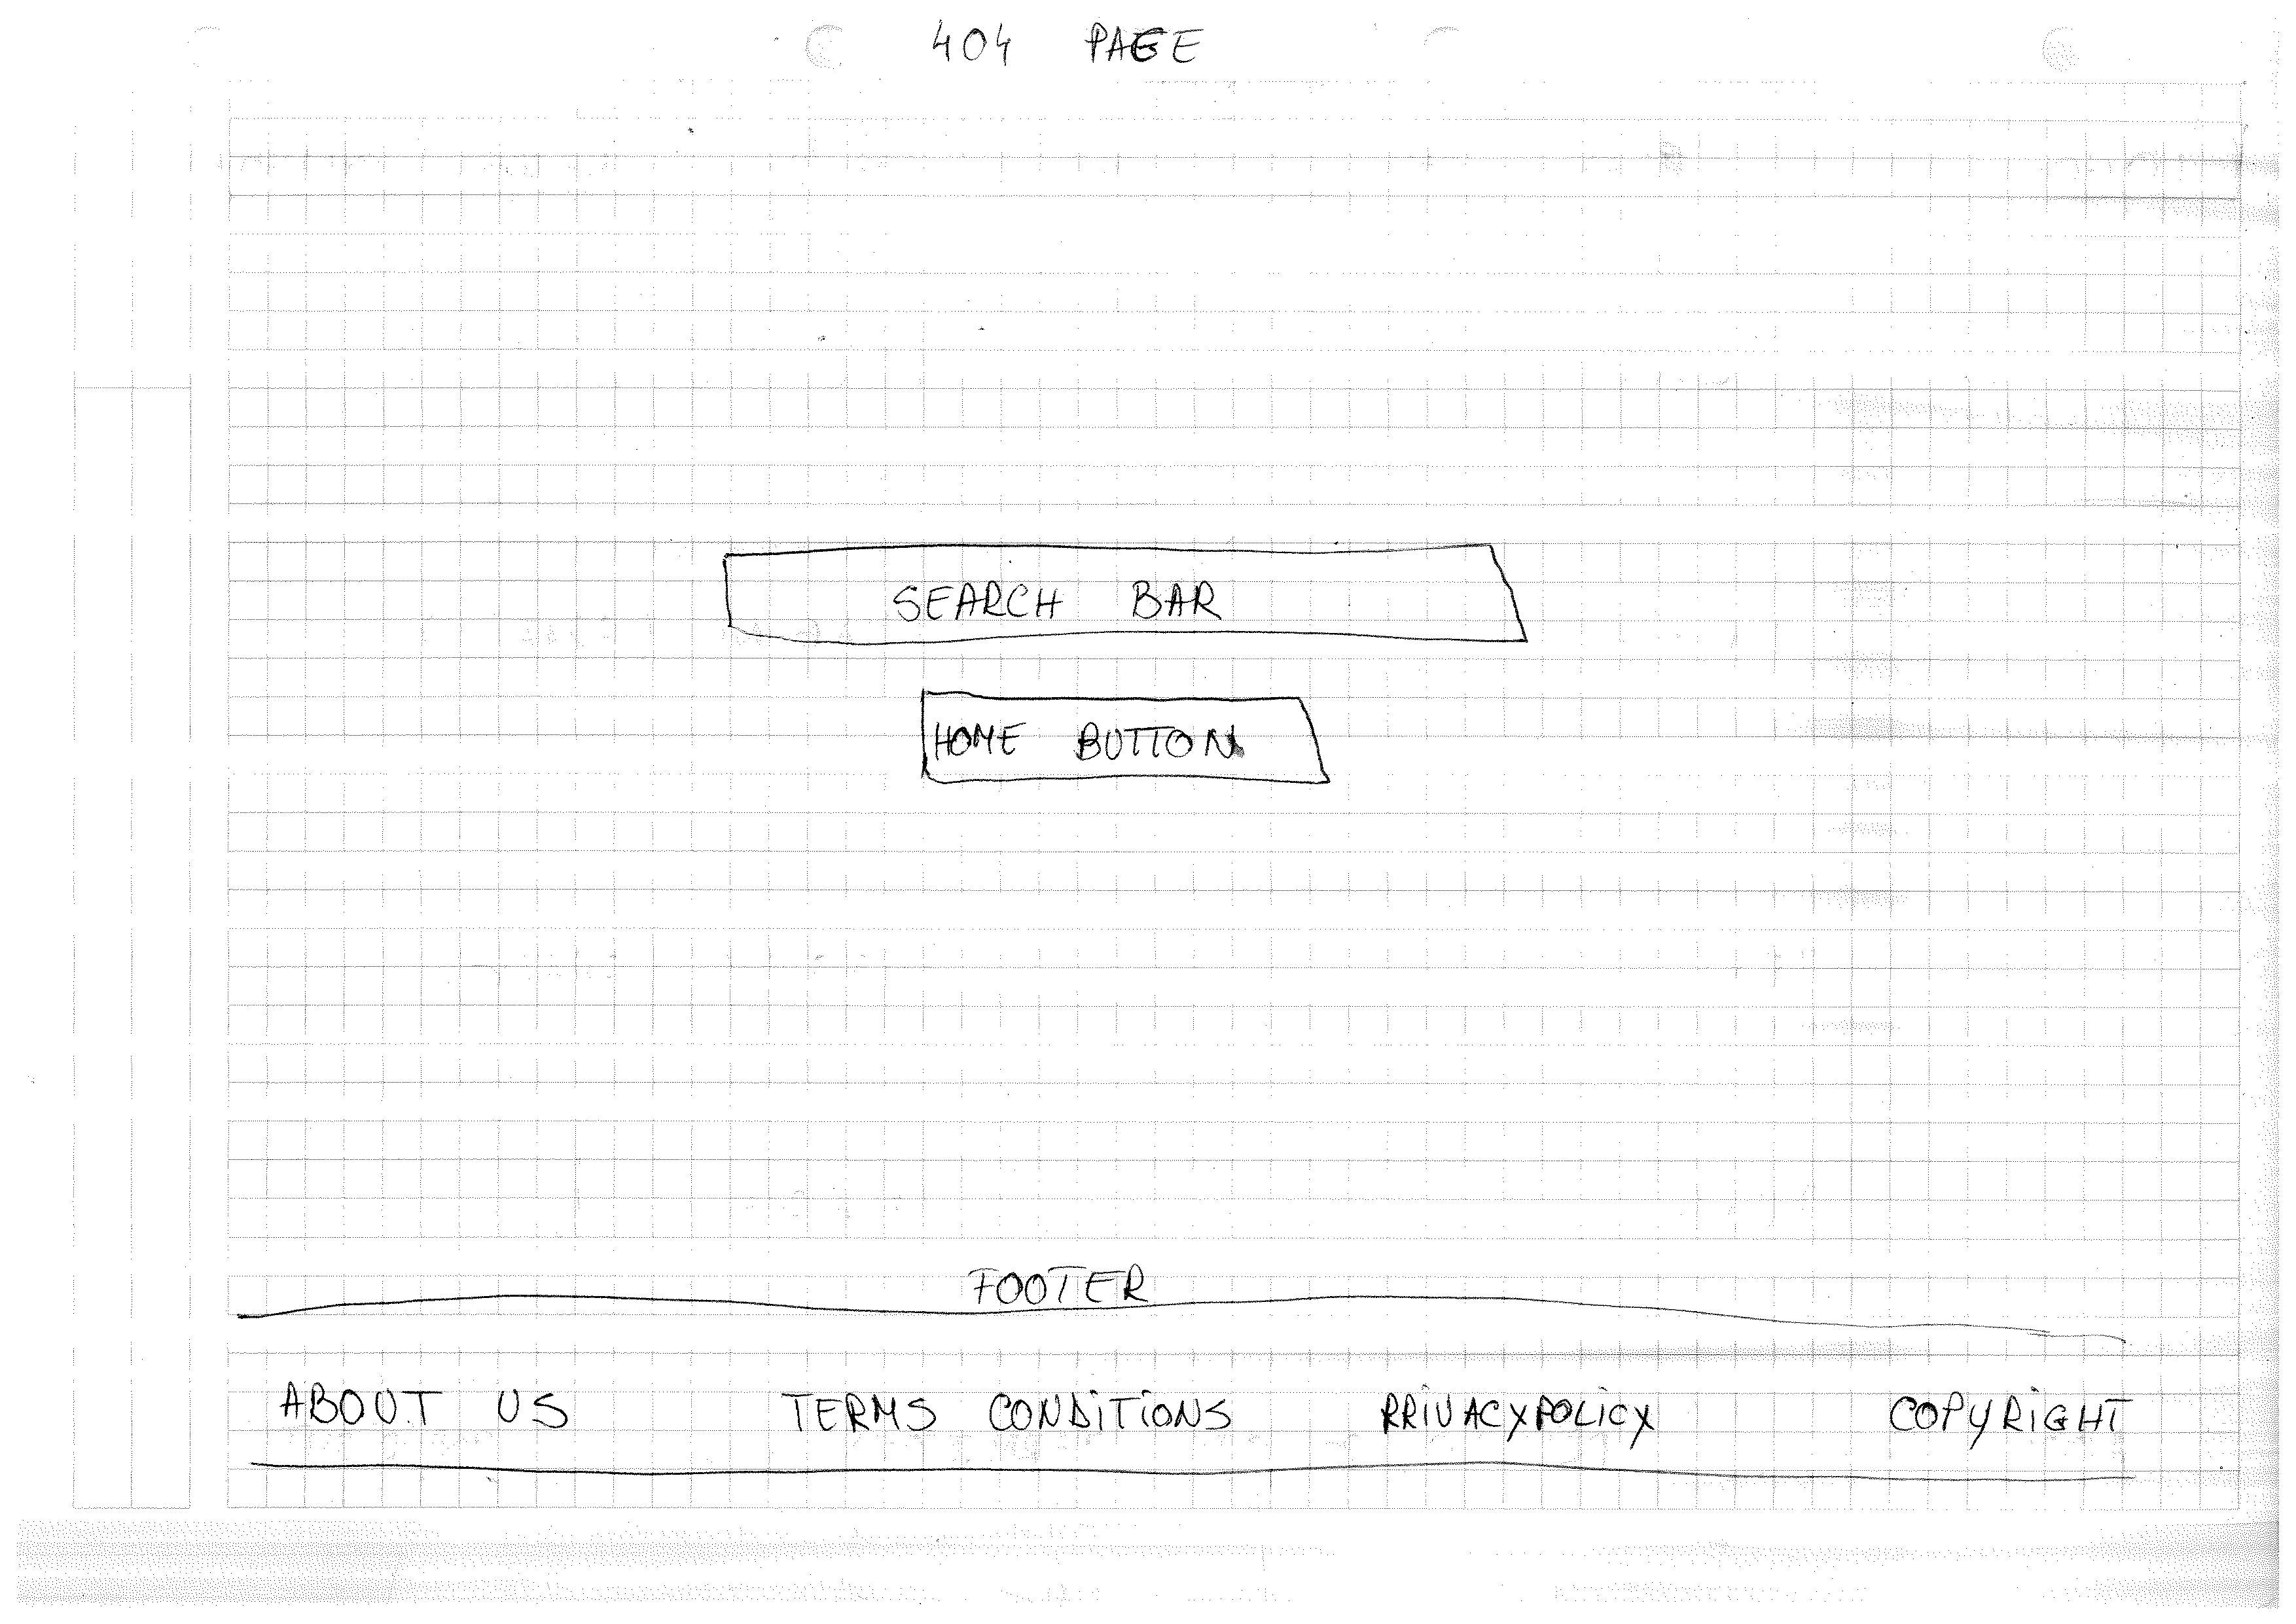 404 PAGE
SEARCH BAR
HOME BUTTON
FOOTER
ABOUT US TERMS CONDITIONS PRIVACYPOLICY COPYRIGHT